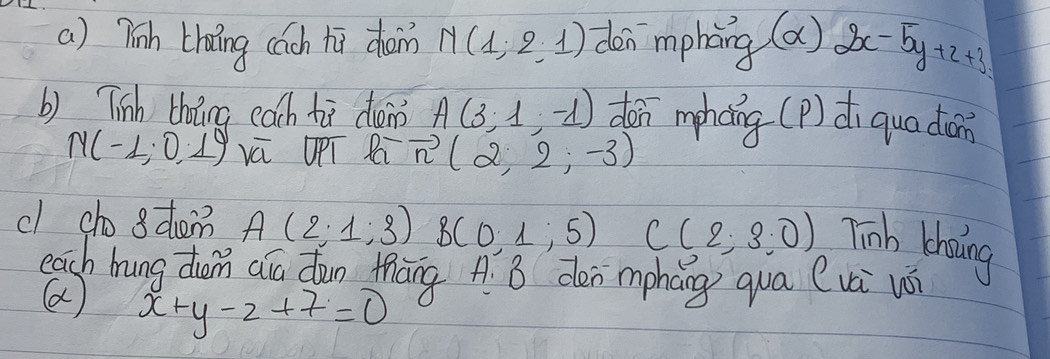 a) Tính khoảng cách từ điểm M(1; 2; 1) đến mphẳng (α) 2x - 5y + z + 3 =
b) Tính khoảng cách từ điểm A(3; 1; -1) đến mphẳng (P) đi qua điểm
M(-1; 0; 1) và VPT là n (2; 2; -3)
c) cho 3 điểm A (2; 1; 3) B(0; 1; 5) C (2; 3; 0) Tính khoảng
cách trung điểm của đoạn thẳng A. B đến mphẳng qua C và với
(α) x + y - z + 7 = 0